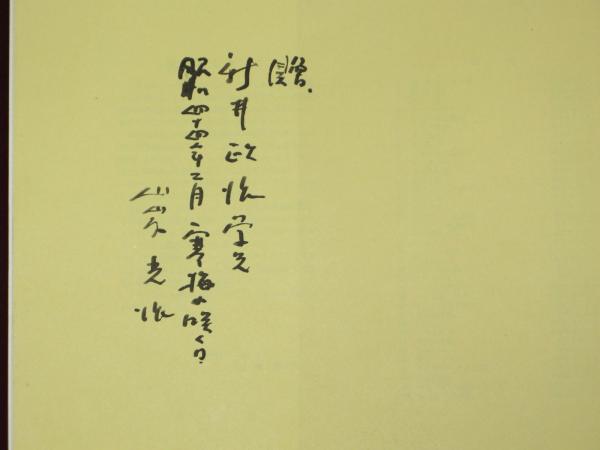 贈
新井政治学兄
昭和四十四年二月 寒梅の咲く日
山 光治